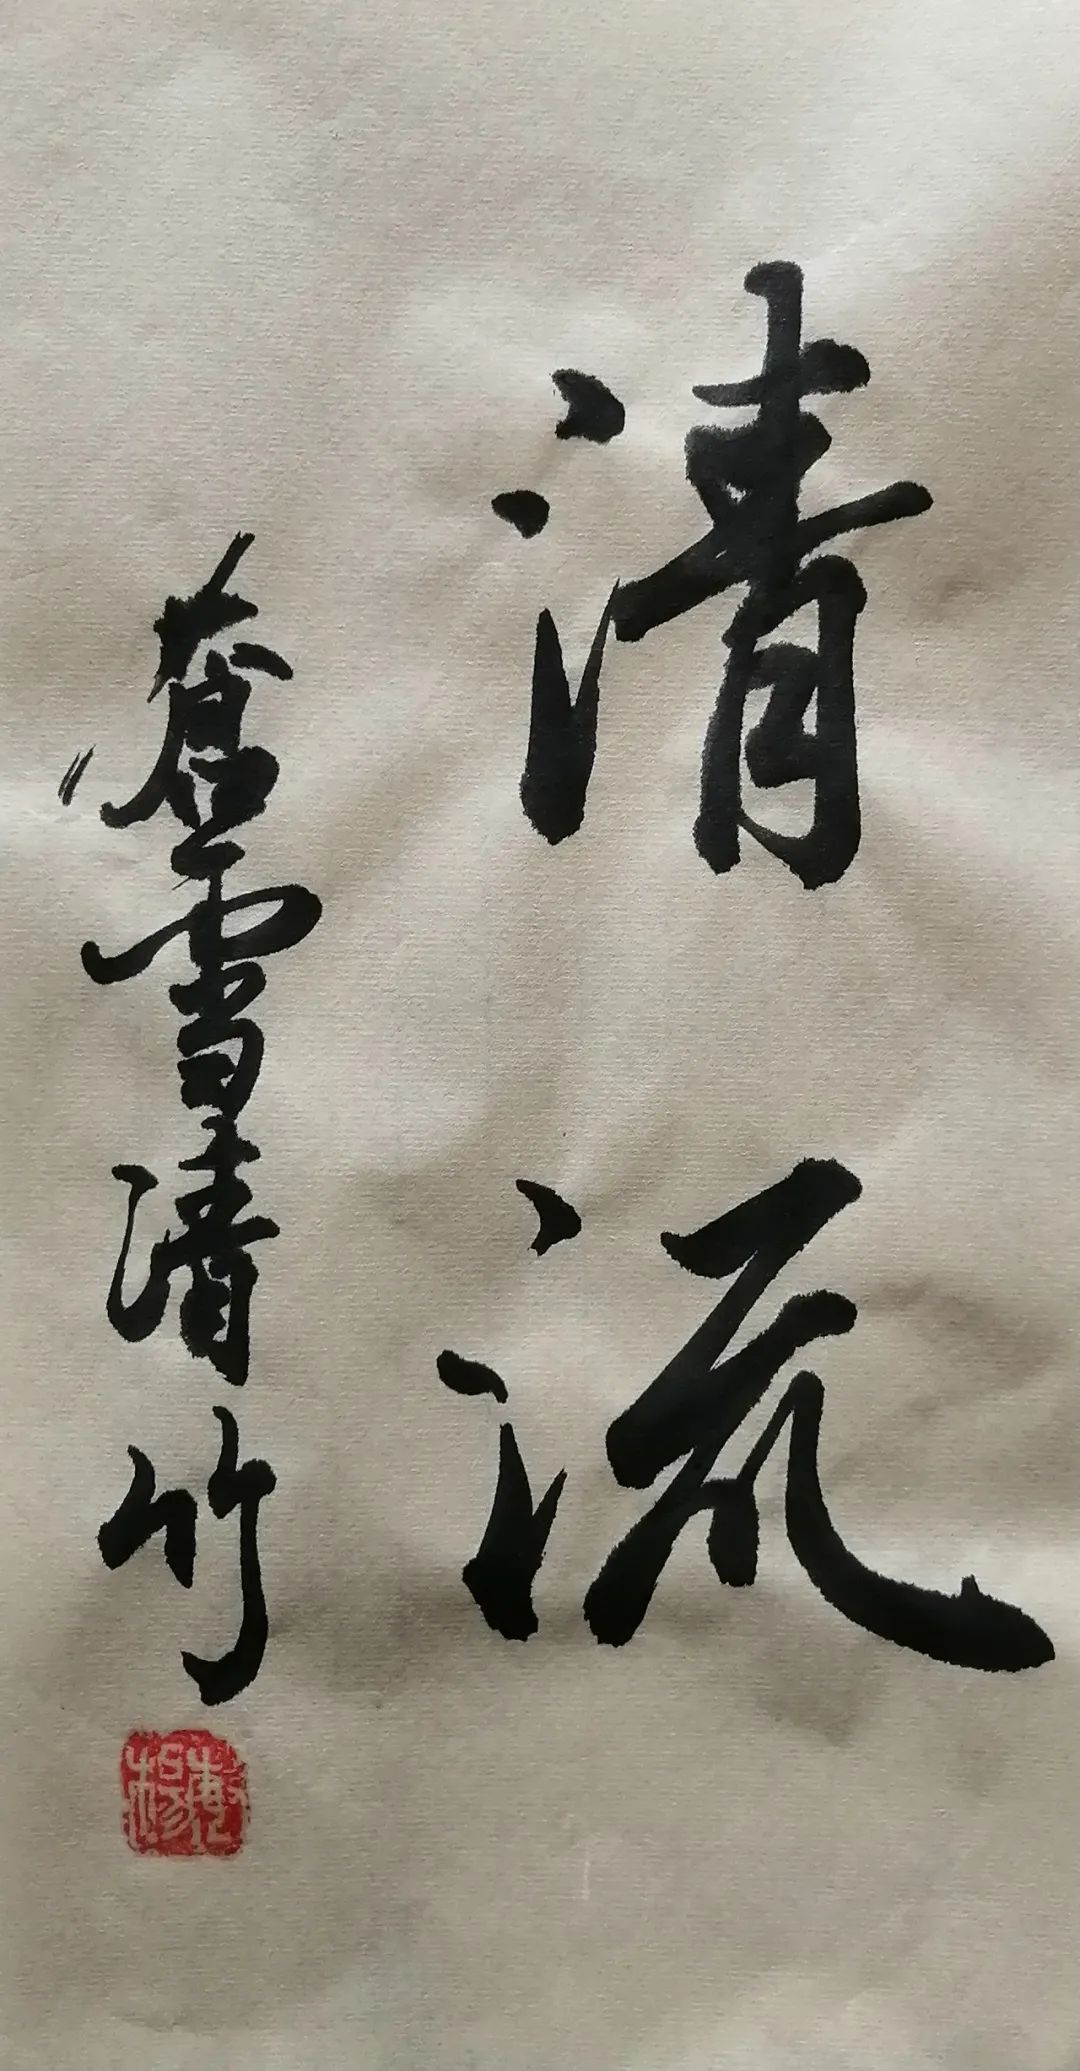 清流
雪清竹